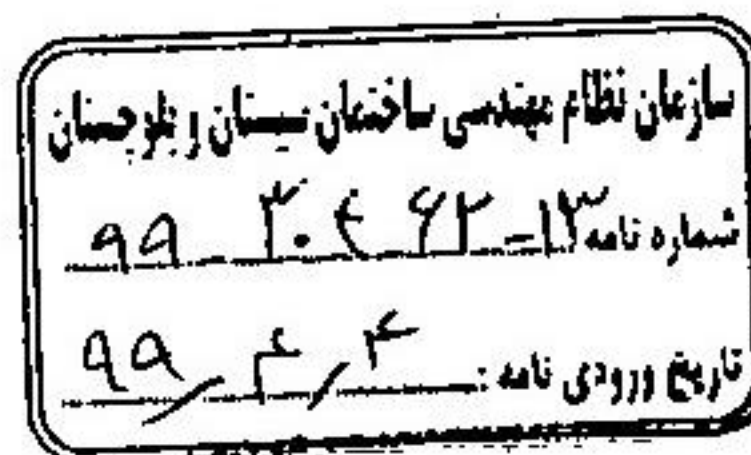 سازمان نظام مهندسی ساختمان سیستان و بلوچستان
شماره نامه ۹۹ ۳۰۴ ۶۲-۱۳
تاریخ ورودی نامه : ۹۹/۴/۴